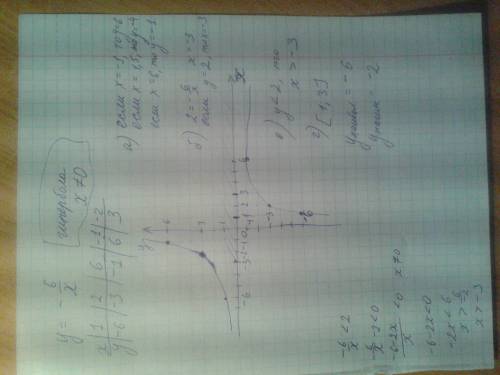 y = -6/x
гипербола
x ≠ 0
x | 1 | 2 | 6 | -1 | -2
y | -6 | -3 | -1 | 6 | 3
а) если x = -1, то y = 6
если x = 1,5, то y = -4
если x = 6, то y = -1
б) 2 = -6/x x = -3
если y = 2, то x = -3
в) y < 2, то
x > -3
г) [1; 3]
y наим = -6
y наиб = -2
y
6
3
-6
-3
-1
0
1
2
3
6
x
-3
-6
-6/x < 2
-6/x - 2 < 0
-6-2x/x < 0 x ≠ 0
-6-2x < 0
-2x < 6
x > 6/-2
x > -3